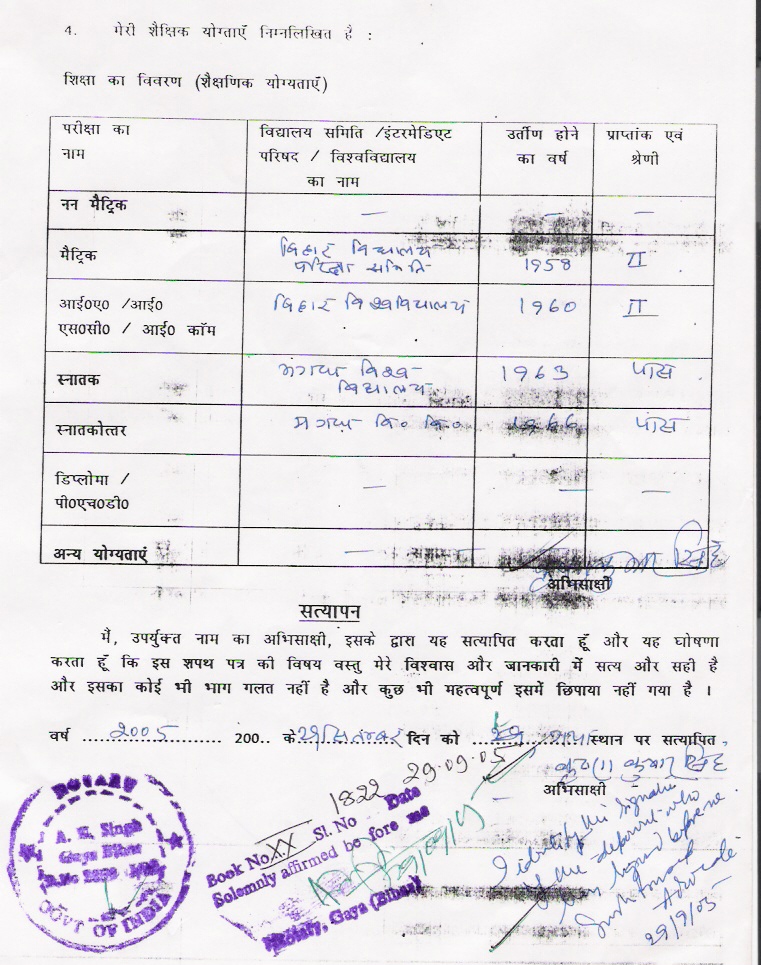 4. मेरी शैक्षिक योग्ताएँ निम्नलिखित है :
शिक्षा का विवरण (शैक्षणिक योग्यताएँ)
परीक्षा का नाम
विद्यालय समिति /इंटरमेडिएट परिषद / विश्वविद्यालय का नाम
उर्तीण होने का वर्ष
प्राप्तांक एवं श्रेणी
नन मैट्रिक — — —
मैट्रिक बिहार विद्यालय परिक्षा समिति 1958 II
आई०ए० /आई० एस०सी० / आई० कॉम बिहार विश्वविद्यालय 1960 II
स्नातक मगध विश्व विद्यालय 1963 पास
स्नातकोत्तर मगध वि० वि० 1966 पास
डिप्लोमा / पी०एच०डी० — — —
अन्य योग्यताएँ —
कुमार सिंह
अभिसाक्षी
सत्यापन
मैं, उपर्युक्त नाम का अभिसाक्षी, इसके द्वारा यह सत्यापित करता हूँ और यह घोषणा
करता हूँ कि इस शपथ पत्र की विषय वस्तु मेरे विश्वास और जानकारी में सत्य और सही है
और इसका कोई भी भाग गलत नहीं है और कुछ भी महत्वपूर्ण इसमें छिपाया नहीं गया है ।
वर्ष 2005 200.. के 29 सितम्बर दिन को गया स्थान पर सत्यापित
कुमार सिंह
अभिसाक्षी
NOTARY
A. K. Singh
Gaya Bihar
GOVT OF INDIA
1822 29-09-05
Book No XX Sl. No Date
Solemnly affirmed be fore me
Notary, Gaya (Bihar)
I identify the signature
of the deponent who
has signed before me.
Advocate
29/9/05